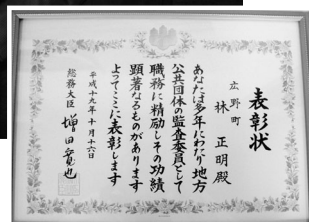 表彰状
広野町
林 正明殿
あなたは多年にわたり地方
公共団体の監査委員として
職務に精励しその功績
顕著なものがあります
よってここに表彰します
平成十九年十月十六日
総務大臣 増田寛也